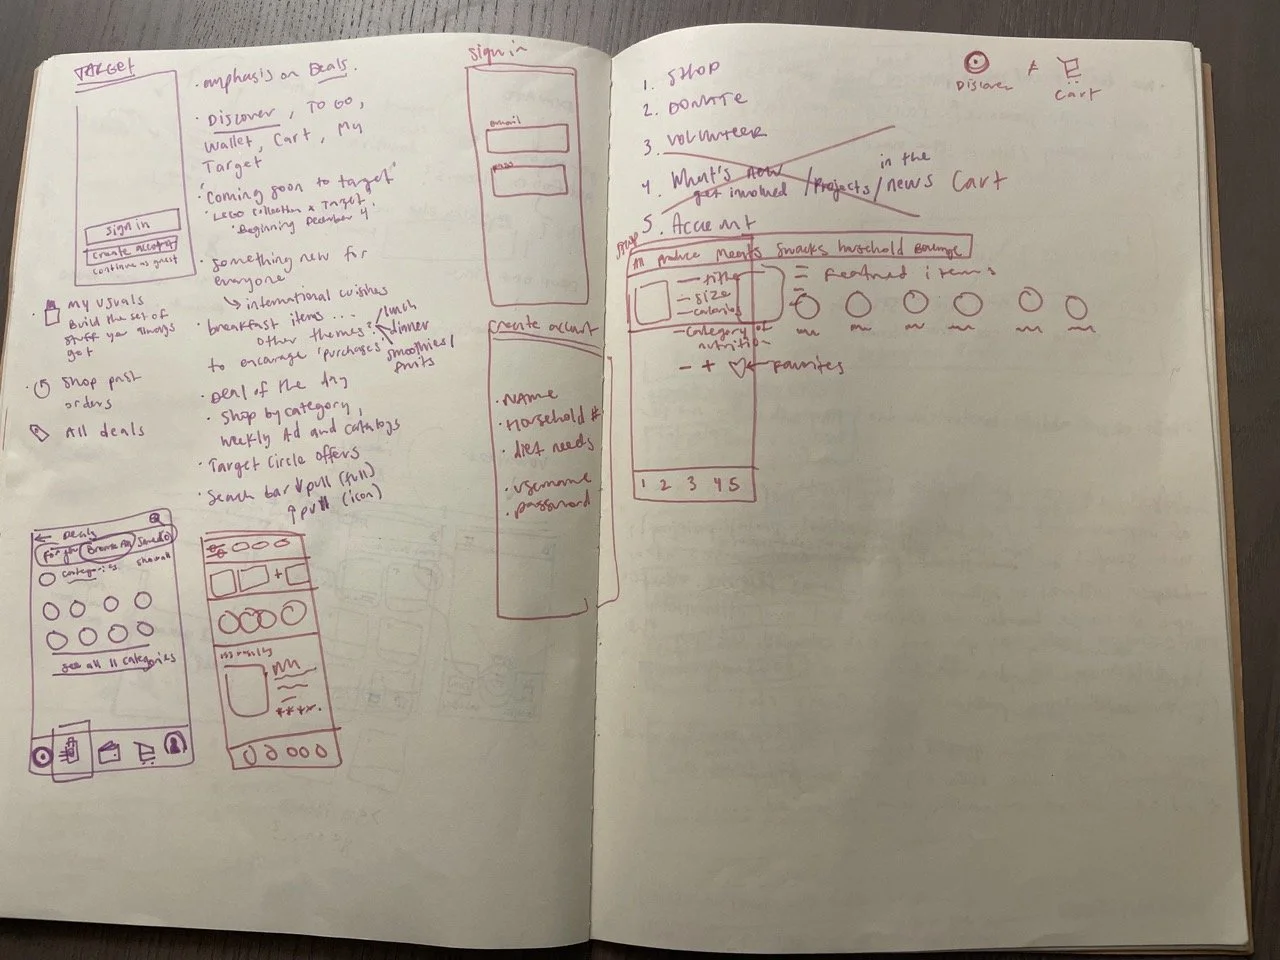 TARGET
sign in
create account
continue as guest
my usuals
Build the set of
stuff you always
get
shop past
orders
All deals
Deals
for you Browse All Saved
categories show all
see all 11 categories
• emphasis on Deals.
• Discover, TO GO,
Wallet, Cart, My
Target
"Coming soon to target"
• LEGO Collection x Target
• Beginning December 4
• something new for
everyone
↳ international cuisines
• breakfast items ...
other themes: lunch
dinner
smoothies/
fruits
to encourage 'purchases'
• Deal of the day
• Shop by category,
weekly Ad and catalogs
• Target Circle offers
• Search bar ↓ pull (full)
↑ pull (icon)
sign in
email
pass
create account
• NAME
• Household #
• diet needs
• username
• password
1. SHOP
2. DONATE
3. VOLUNTEER
4. What's new
get involved / projects / in the
news Cart
5. Account
Discover
Cart
All produce Meats snacks household
title
size
calories
category of
nutrition
- + ♡ ← Favorites
1 2 3 4 5
= Featured items